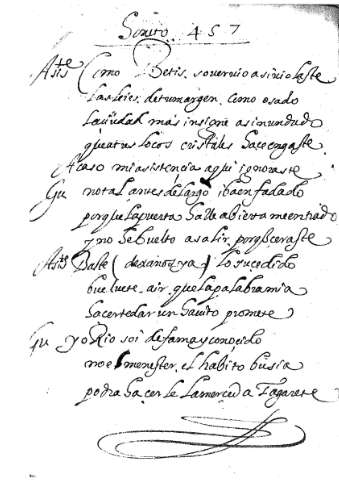 Soneto. 457
Asiste Como Betis soveruio asi violaste
las leies de tu margen, como osado
la ciudad más insigne as inundado
q̃ vatus locos cristales sacó engaste
Acaso mi asistencia aqui ignoraste
Gu no tal antes de largo iba enfadado
porque la puerta hallé abierta me entrado
y no he buelto a salir porq̃ serraste
Asiste Baste (dexanos ya) lo sucedido
buelvete a ir, que la palabra mia
hacerte dar un havito promete
Gu yo Rio soi de fama y conoçido
no e menester el habito busia
podra hacerle la merced a Tagarete